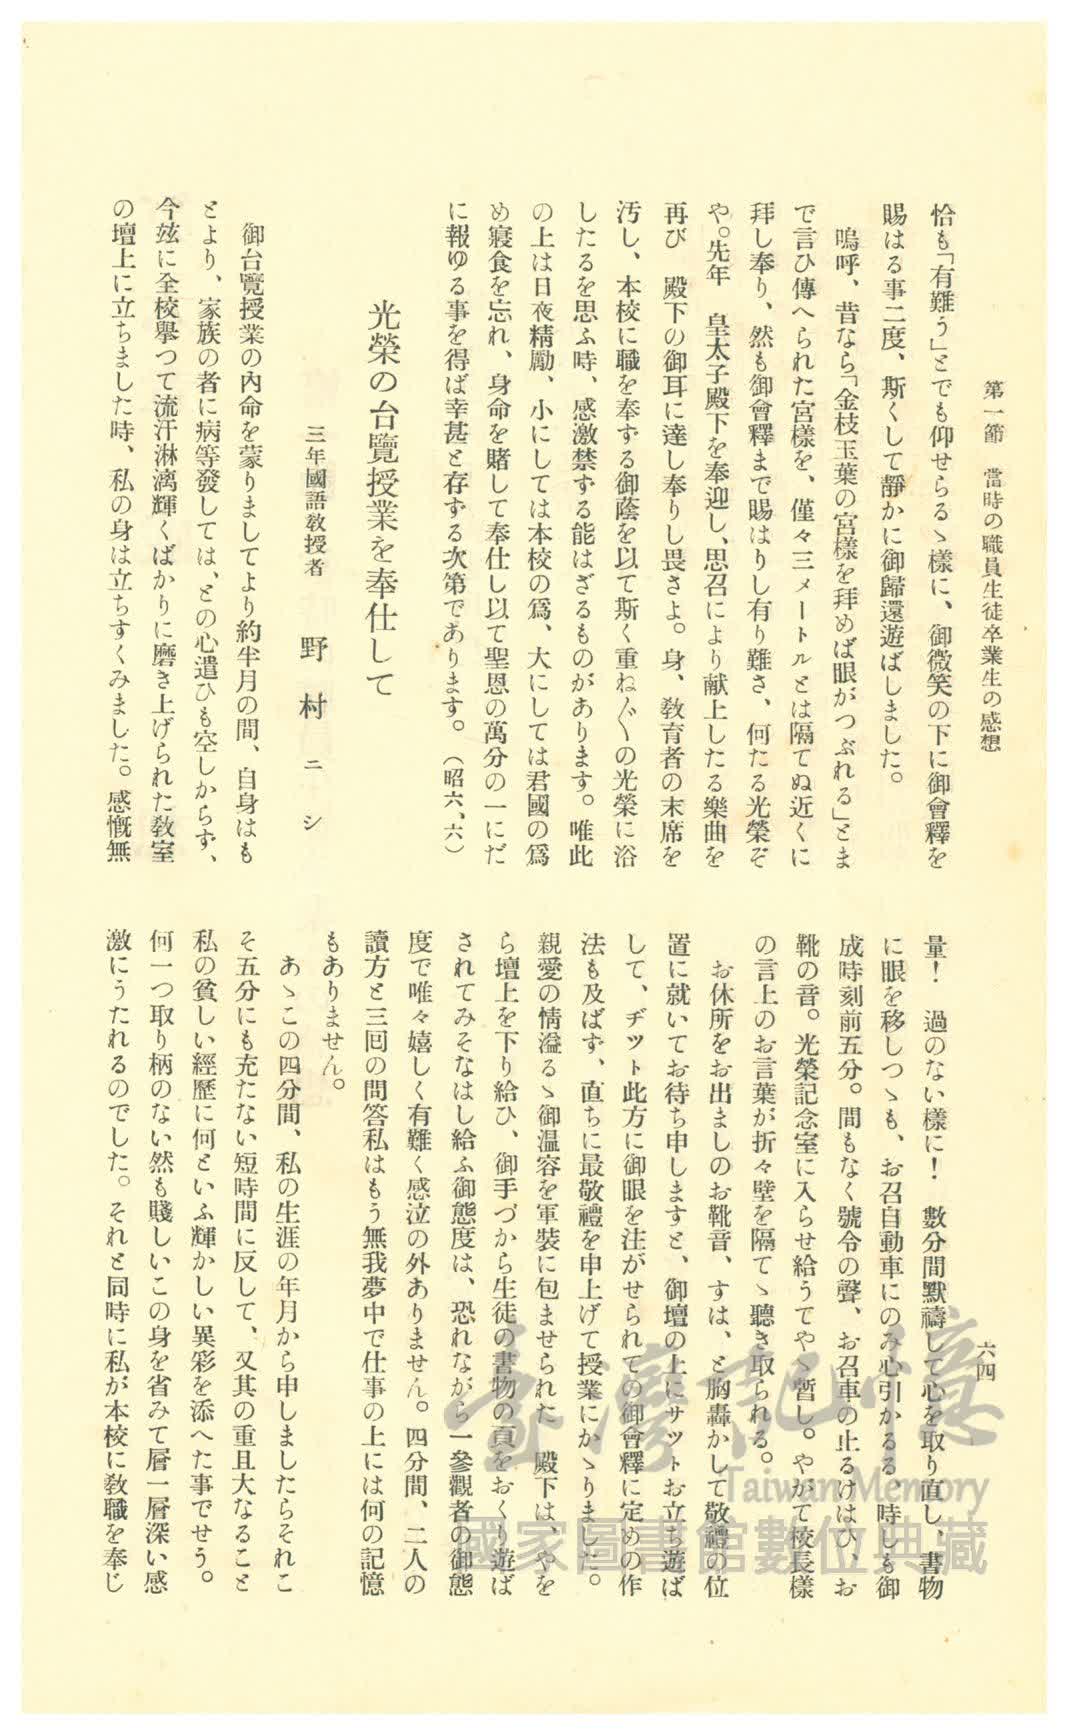 第一節　當時の職員生徒卒業生の感想
六四
恰も「有難う」とでも仰せらるゝ樣に、御微笑の下に御會釋を
賜はる事二度、斯くして靜かに御歸還遊ばしました。
嗚呼、昔なら「金枝玉葉の宮樣を拜めば眼がつぶれる」とま
で言ひ傳へられた宮樣を、僅々三メートルとは隔てぬ近くに
拜し奉り、然も御會釋まで賜はりし有り難さ、何たる光榮ぞ
や。先年　皇太子殿下を奉迎し、思召により献上したる樂曲を
再び　殿下の御耳に達し奉りし畏さよ。身、敎育者の末席を
汚し、本校に職を奉ずる御蔭を以て斯く重ね〴〵の光榮に浴
したるを思ふ時、感激禁ずる能はざるものがあります。唯此
の上は日夜精勵、小にしては本校の爲、大にしては君國の爲
め寢食を忘れ、身命を賭して奉仕し以て聖恩の萬分の一にだ
に報ゆる事を得ば幸甚と存ずる次第であります。（昭六、六）
光榮の台覽授業を奉仕して
三年國語敎授者　野村ニシ
御台覽授業の內命を蒙りましてより約半月の間、自身はも
とより、家族の者に病等發しては、との心遣ひも空しからず、
今玆に全校擧つて流汗淋漓輝くばかりに磨き上げられた敎室
の壇上に立ちました時、私の身は立ちすくみました。感慨無
量！　過のない樣に！　數分間默禱して心を取り直し、書物
に眼を移しつゝも、お召自動車にのみ心引かるる　時しも御
成時刻前五分。間もなく號令の聲、お召車の止るけはひ、お
靴の音。光榮記念室に入らせ給うてやゝ暫し。やがて校長樣
の言上のお言葉が折々壁を隔てゝ聽き取られる。
お休所をお出ましのお靴音、すは、と胸轟かして敬禮の位
置に就いてお待ち申しますと、御壇の上にサツトお立ち遊ば
して、ヂツト此方に御眼を注がせられての御會釋に定めの作
法も及ばず、直ちに最敬禮を申上げて授業にかゝりました。
親愛の情溢るゝ御温容を軍裝に包ませられた　殿下は、やを
ら壇上を下り給ひ、御手づから生徒の書物の頁をおくり遊ば
されてみそなはし給ふ御態度は、恐れながら一參觀者の御態
度で唯々嬉しく有難く感泣の外ありません。四分間、二人の
讀方と三回の問答私はもう無我夢中で仕事の上には何の記憶
もありません。
あゝこの四分間、私の生涯の年月から申しましたらそれこ
そ五分にも充たない短時間に反して、又其の重且大なること
私の貧しい經歷に何といふ輝かしい異彩を添へた事でせう。
何一つ取り柄のない然も賤しいこの身を省みて層一層深い感
激にうたれるのでした。それと同時に私が本校に敎職を奉じ
臺灣記憶
Taiwan Memory
國家圖書館數位典藏